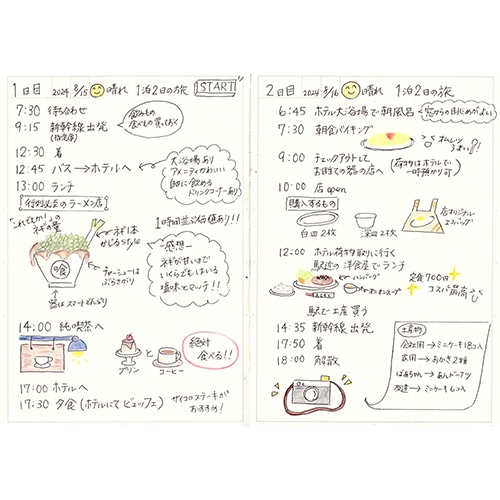 1日目 2024 3/15 晴れ 1泊2日の旅 START
7:30 待ち合わせ
9:15 新幹線出発
(指定席)
飲みもの
食べもの買っておく
12:30 着
12:45 バス→ホテルへ
大浴場あり
アメニティかわいい
自由に飲める
ドリンクコーナーあり
13:00 ランチ
行列必至のラーメン店
「これでもか!」の
ネギの量
ネギ1本
かじるstyle
チャーシューは
ぶらさがり
器はスートどんぶり
1時間並ぶ価値あり!!
-感想-
ネギが甘いまで
いくらでもはいる
塩味でマッチ!!
14:00 純喫茶へ
プリン
コーヒー
絶対
食べる!!
17:00 ホテルへ
17:30 夕食(ホテルにてビュッフェ)
サイコロステーキが
おすすめ!
2日目 2024 3/16 晴れ 1泊2日の旅
6:45 ホテル大浴場で朝風呂
窓からの日じめがよい
7:30 朝食バイキング
オムレツ
うまい!!
9:00 チェックアウトして
お目当ての器の店へ
(荷物はホテルで
一時預かり可)
10:00 店open
購入するもの
白皿2枚
深皿2枚
店オリジナル
エコバッグ
12:00 ホテル荷物取りに行く
駅近の洋食屋でランチ
ハンバーグ
オニオンスープ
定食900円
コスパ最高
駅で土産買う
14:35 新幹線出発
17:50 着
18:00 解散
土産物
会社用→ミニケーキ18コ入
家用→おかき2種
ばあちゃん→あんドーナツ
友達→ミニケーキ6コ入